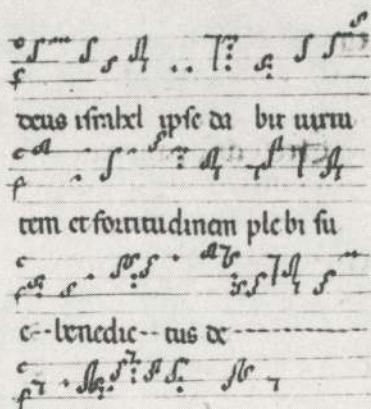 deus israhel ipse da bit uirtu
tem et fortitudinem plebi su
e--benedic--tus de------------